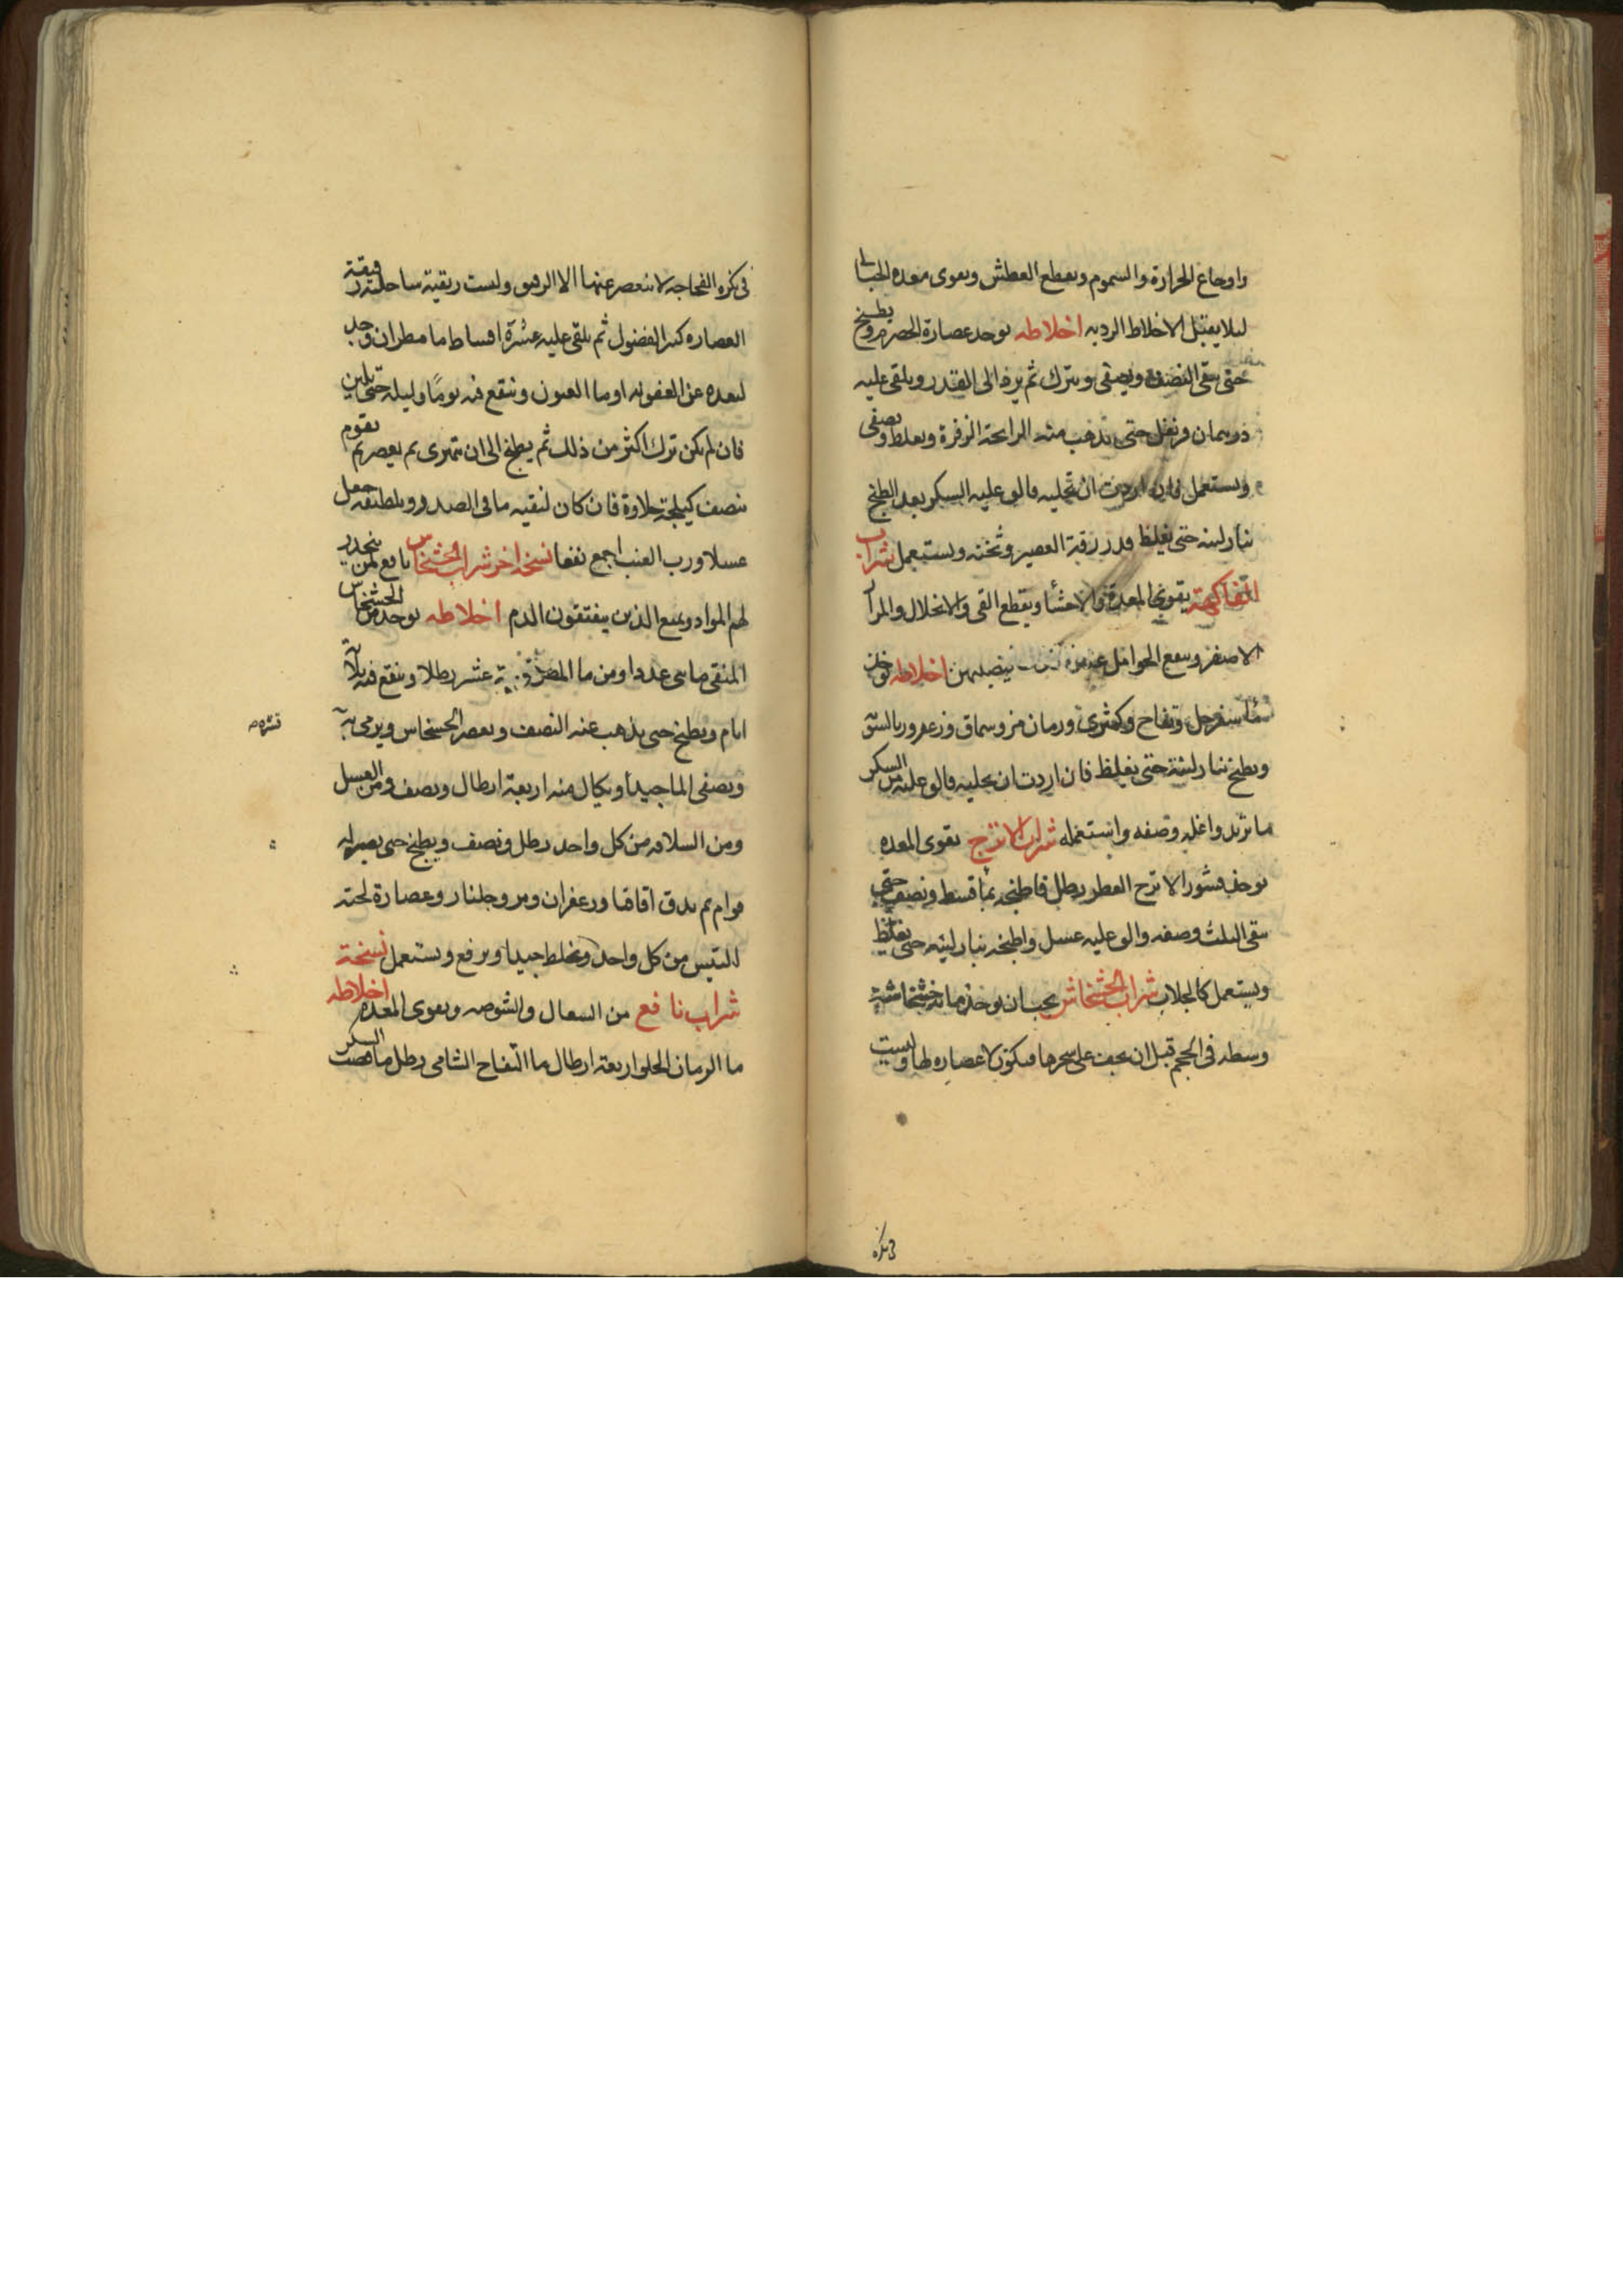 واوجاع الحرارة والسموم ويقطع العطش ويقوى معده الحبالى
ليلا يقبل الاخلاط الرديه اخلاطه يوخد عصارة الحصرم ويطبخ
حتى يبقى النصف ويصفى ويترك ثم يرد الى القدر ويلقى عليه
قرنفل حتى تذهب منه الرايحة الزفرة ويغلط ويصفى
ويستعمل فان اردت ان تحليه فالق عليه السكر بعد الطبخ
بنار لينه حتى يغلظ قدر رقبة العصير وثخنه ويستعمل شراب
الفاكهة يقوى المعدة والاحشا ويقطع القى والانحلال والمرار
الاصفر وينفع الحوامل اخلاطه يوخذ
سفرجل وتفاح وكمثرى ورمان مز وسماق وزعرور بالسوية
ويطبخ بنار لينة حتى يغلظ فان اردت ان تحليه فالق عليه من السكر
ما تريد واغليه وصفه واستعمله شراب الاترج يقوى المعده
يوخذ قشور الاترج العطر رطل فاطبخه بما قسط ونصف حتى
يبقى الثلث وصفه والق عليه عسل واطبخه بنار لينه حتى يغلظ
ويستعمل كالجلاب شراب الخشخاش يجب ان يوخذ مائة خشخاشة
وسطه فى الحجم قبل ان يجف على شجرها فيكون لا عصاره لها وليست
فى نكره
فى نكره الفجاجه لا ينعصر عنها الا الرقيق وليست رقيقة
العصاره كثير الفضول ثم يلقى عليه عشرة اقساط ما مطر ان وجد
لبعده عن العفونه او ما العيون وينقع فيه يومًا وليله حتى يلين
فان لم يكن ترك اكثر من ذلك ثم يطبخ الى ان يتهرى ثم يعصر ثم يقوم
بنصف كيلجة حلاوة فان كان لتنقيه ما فى الصدر وتلطيفه جعل
عسلا ورب العنب اجمع نفعا نسخة اخر شراب الخشخاش نافع لمن ينحدر
لهم المواد ويمنع الذين ينفثون الدم اخلاطه يوخد من الخشخاش
المنقى مايى عددا ومن ما المطر عشر رطلا وينقع فيه ثلاثة
ايام ويطبخ حتى يذهب عنه النصف ويعصر الخشخاس ويرمى به
ويصفى الما جيدا ويكال منه اربعة ارطال ونصف ومن العسل
ومن السلافه من كل واحد رطل ونصف ويطبخ حتى يصير له
قوام ثم يدق اقاقيا وزعفران ومر وجلنار وعصارة لحية
التيس من كل واحد ويخلط جيدا ويرفع ويستعمل نسخة
شراب نافع من السعال والشوصه ويقوى المعده اخلاطه
ما الرمان الحلو اربعة ارطال ما التفاح الشامى رطل ما قصب السكر